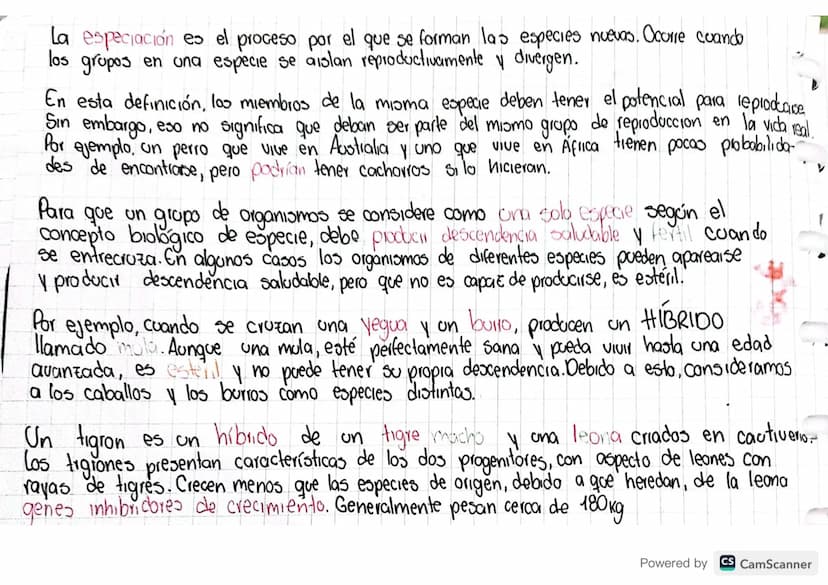 La especiación es el proceso por el que se forman las especies nuevas. Ocurre cuando
los grupos en una especie se aislan reproductivamente y divergen.
En esta definición, los miembros de la misma especie deben tener el potencial para reproducirse
Sin embargo, eso no significa que deban ser parte del mismo grupo de reproduccion en la vida real.
Por ejemplo, un perro que vive en Australia y uno que vive en África tienen pocas probabilida-
des de encontrarse, pero podrían tener cachorros si lo hicieran.
Para que un grupo de organismos se considere como una sola especie según el
concepto biológico de especie, debe producir descendencia saludable y fertil cuando
se entrecruza. En algunos casos los organismos de diferentes especies pueden aparearse
y producir descendencia saludable, pero que no es capaz de producirse, es estéril.
Por ejemplo, cuando se cruzan una yegua y un burro, producen un HÍBRIDO
llamado mula. Aunque una mula, esté perfectamente sana y pueda vivir hasta una edad
avanzada, es estéril y no puede tener su propia descendencia. Debido a esto, consideramos
a los caballos y los burros como especies distintas.
Un tigron es un híbrido de un tigre macho y una leona criados en cautiverio.
Los tigrones presentan características de los dos progenitores, con aspecto de leones con
rayas de tigres. Crecen menos que las especies de origen, debido a que heredan, de la leona
genes inhibidores de crecimiento. Generalmente pesan cerca de 180kg
Powered by CS CamScanner